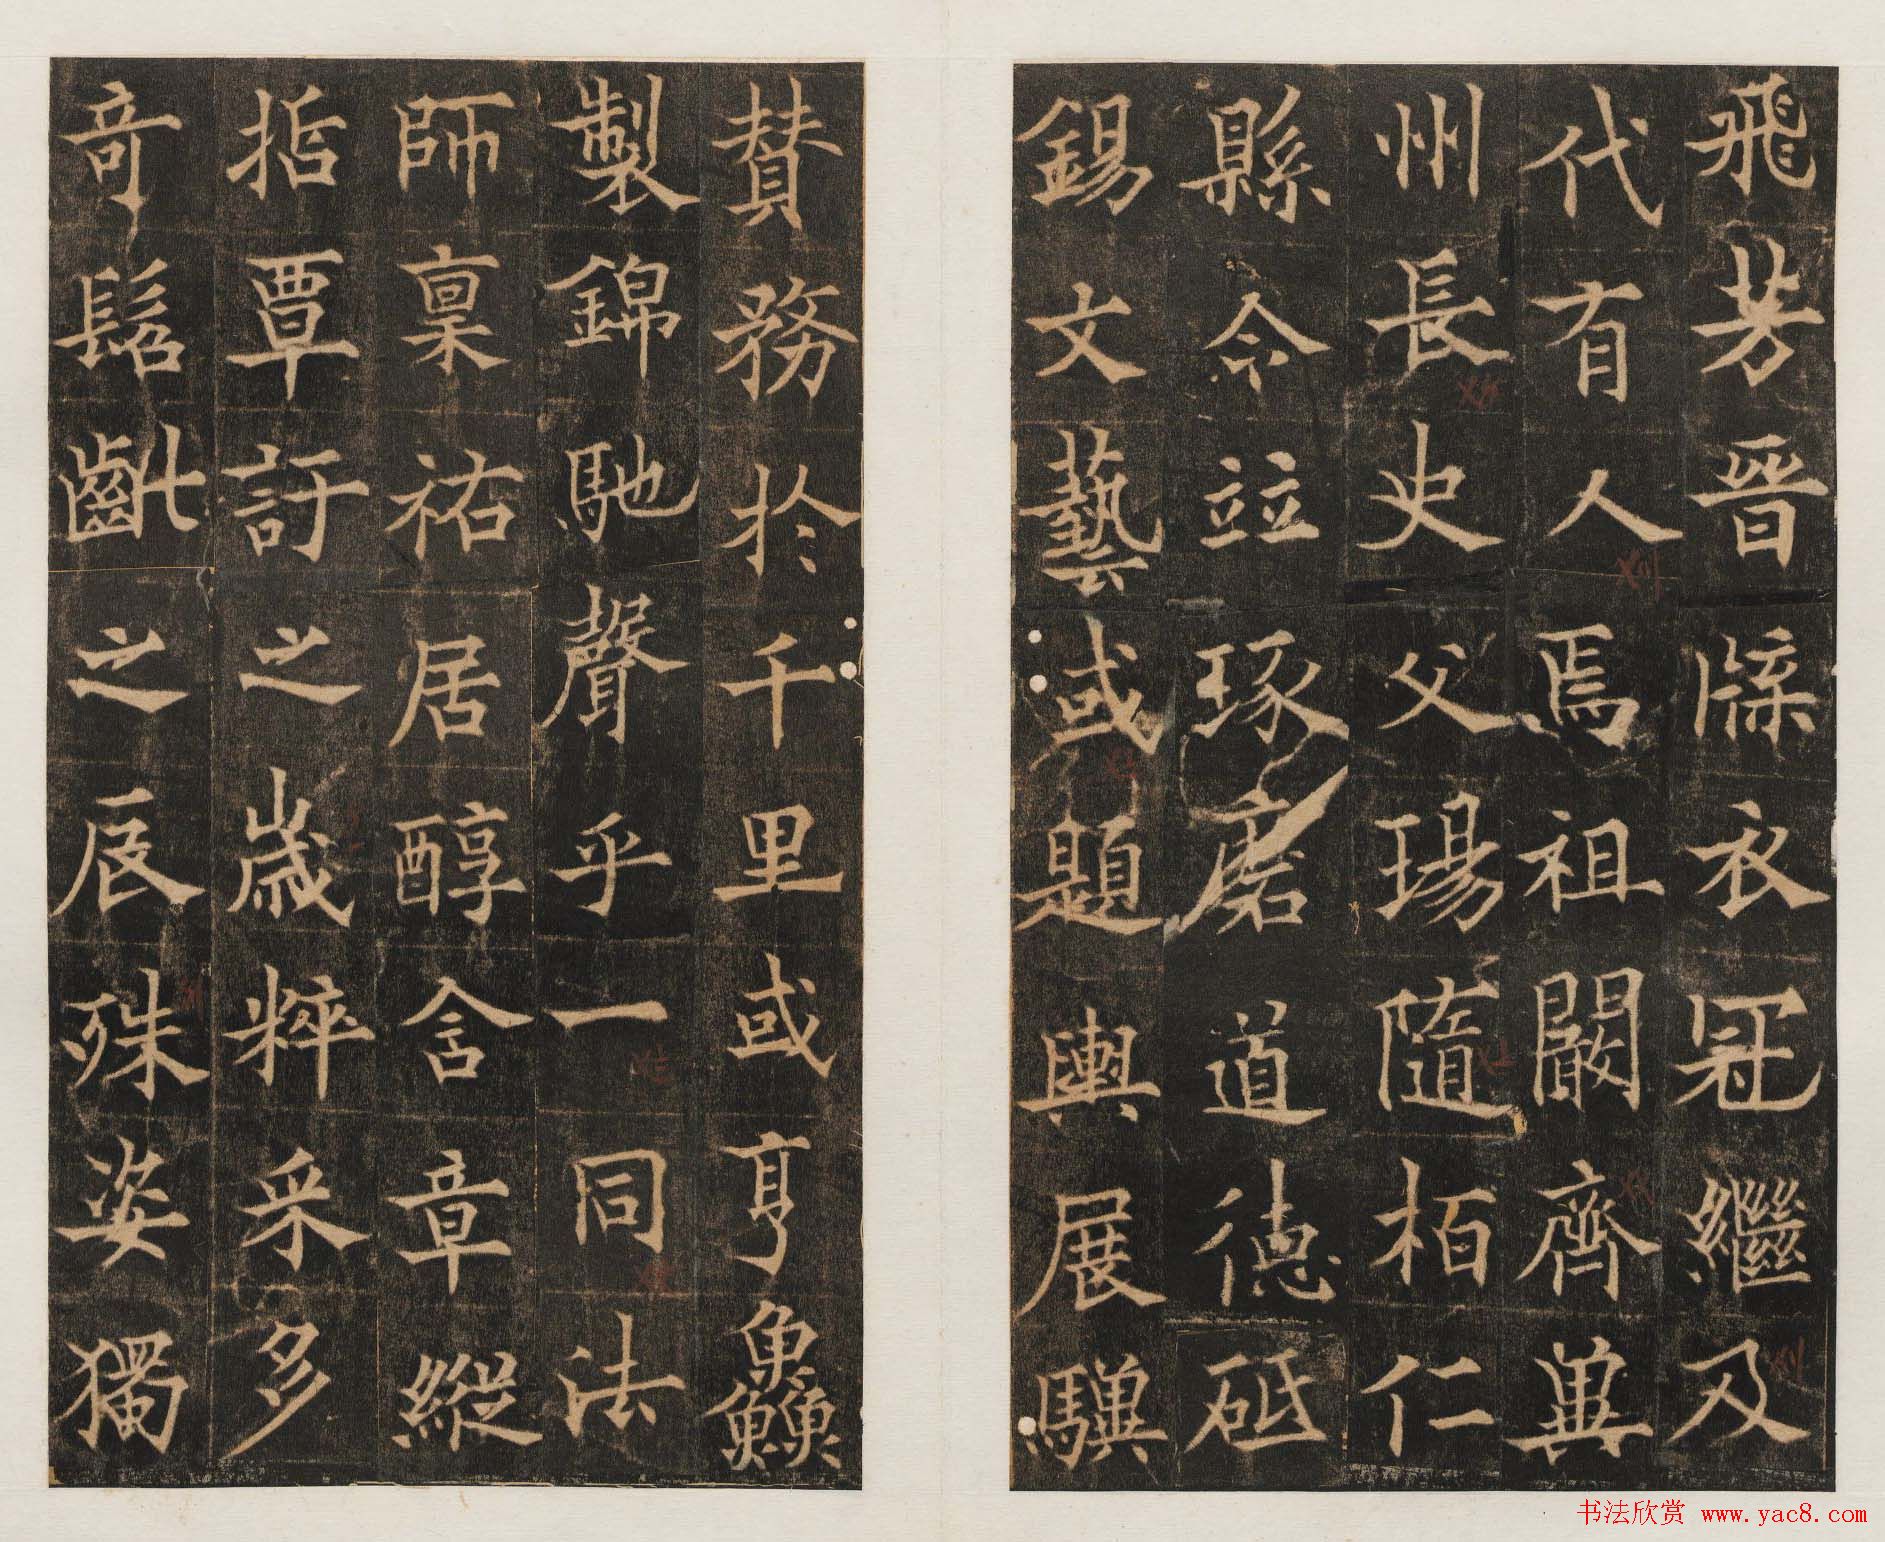 飛芳晉牒衣冠繼及
代有人焉祖闞齊冀
州長史父瑒隨栢仁
縣令竝琢磨道德砥
錫文藝或題輿展驥
贊務於千里或亨鱻
製錦馳聲乎一同法
師稟祐居醇含章縱
指覃訏之歲粹采多
奇髫齔之辰殊姿獨
书法欣赏 www.yac8.com